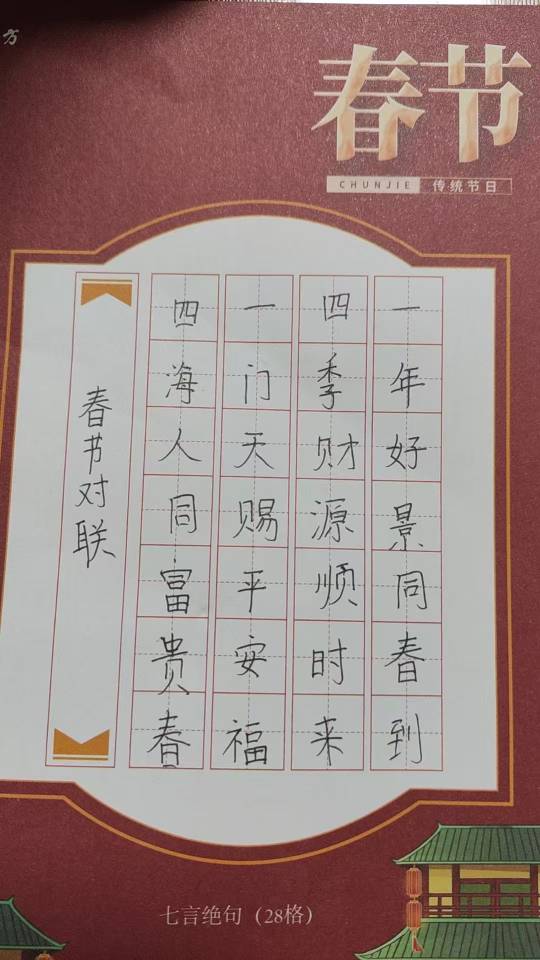 方
春节
CHUNJIE 传统节日
一年好景同春到
四季财源顺时来
一门天赐平安福
四海人同富贵春
春节对联
七言绝句（28格）